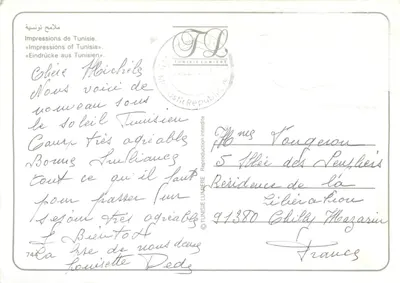 ملامح تونسية
Impressions de Tunisie.
«Impressions of Tunisie».
«Eindrücke aus Tunisien».
Chère Michèle
Nous voici de
nouveau sous
le soleil Tunisien
très agréable
Bonne Ambiance
tout ce qu'il faut
pour passer un
séjour très agréable
A Bientôt
La Bise de nous deux
Louisette Dédé
TL
TUNISIE LUMIERE
© TUNISIE LUMIERE Reproduction interdite
Mme Vougeron
5 Allée des
Résidence de la
91380 Chilly Mazarin
France